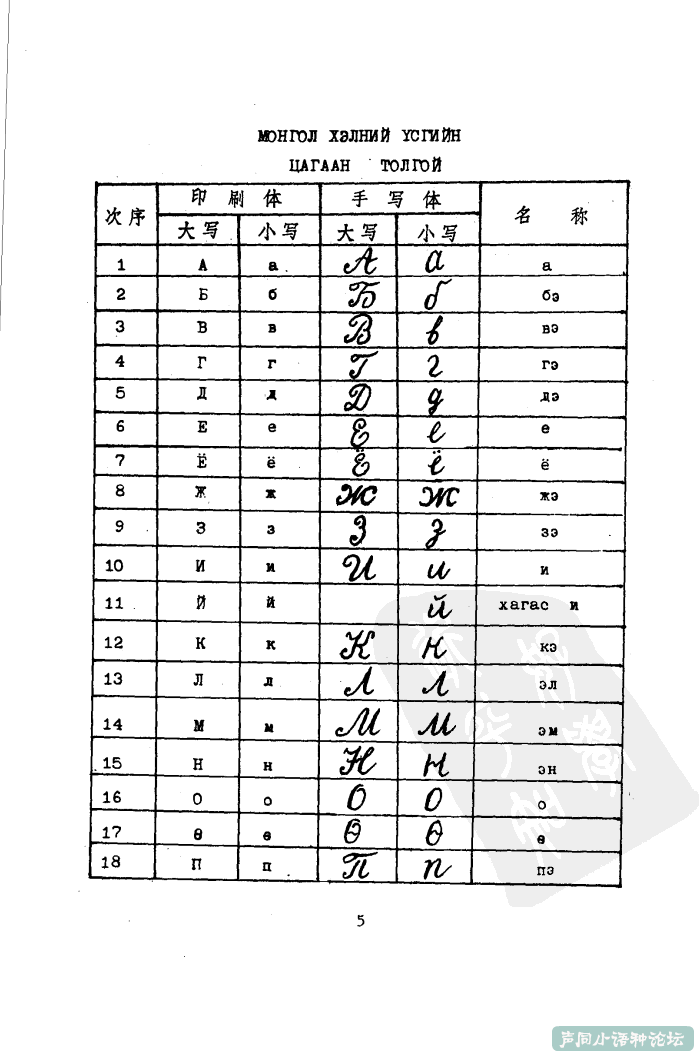 МОНГОЛ ХЭЛНИЙ ҮСГИЙН
ЦАГААН ТОЛГОЙ
次序 印刷体 手写体 名称
大写 小写 大写 小写
1 А а А а а
2 Б б Б б бэ
3 В в В в вэ
4 Г г Г г гэ
5 Д д Д д дэ
6 Е е Е е е
7 Ё ё Ё ё ё
8 Ж ж Ж ж жэ
9 З з З з зэ
10 И и И и и
11 Й й й хагас и
12 К к К к кэ
13 Л л Л л эл
14 М м М м эм
15 Н н Н н эн
16 О о О о о
17 Ө ө Ө ө ө
18 П п П п пэ
5
声同小语种论坛